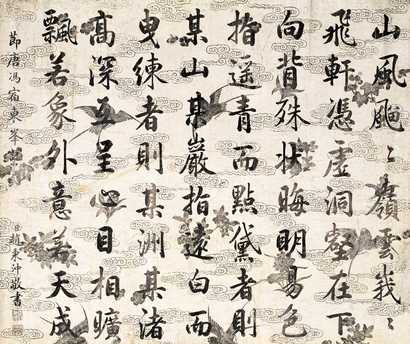 山風〻嶺雲峩〻
飛軒憑虛洞壑在下
向背殊狀晦明易色
指遥青而點黛者則
某山某巖指遠白而
曳練者則某洲某渚
高深互呈心目相曠
飄若象外意若天成
節唐馮宿東峯
臣趙秉沖敬書